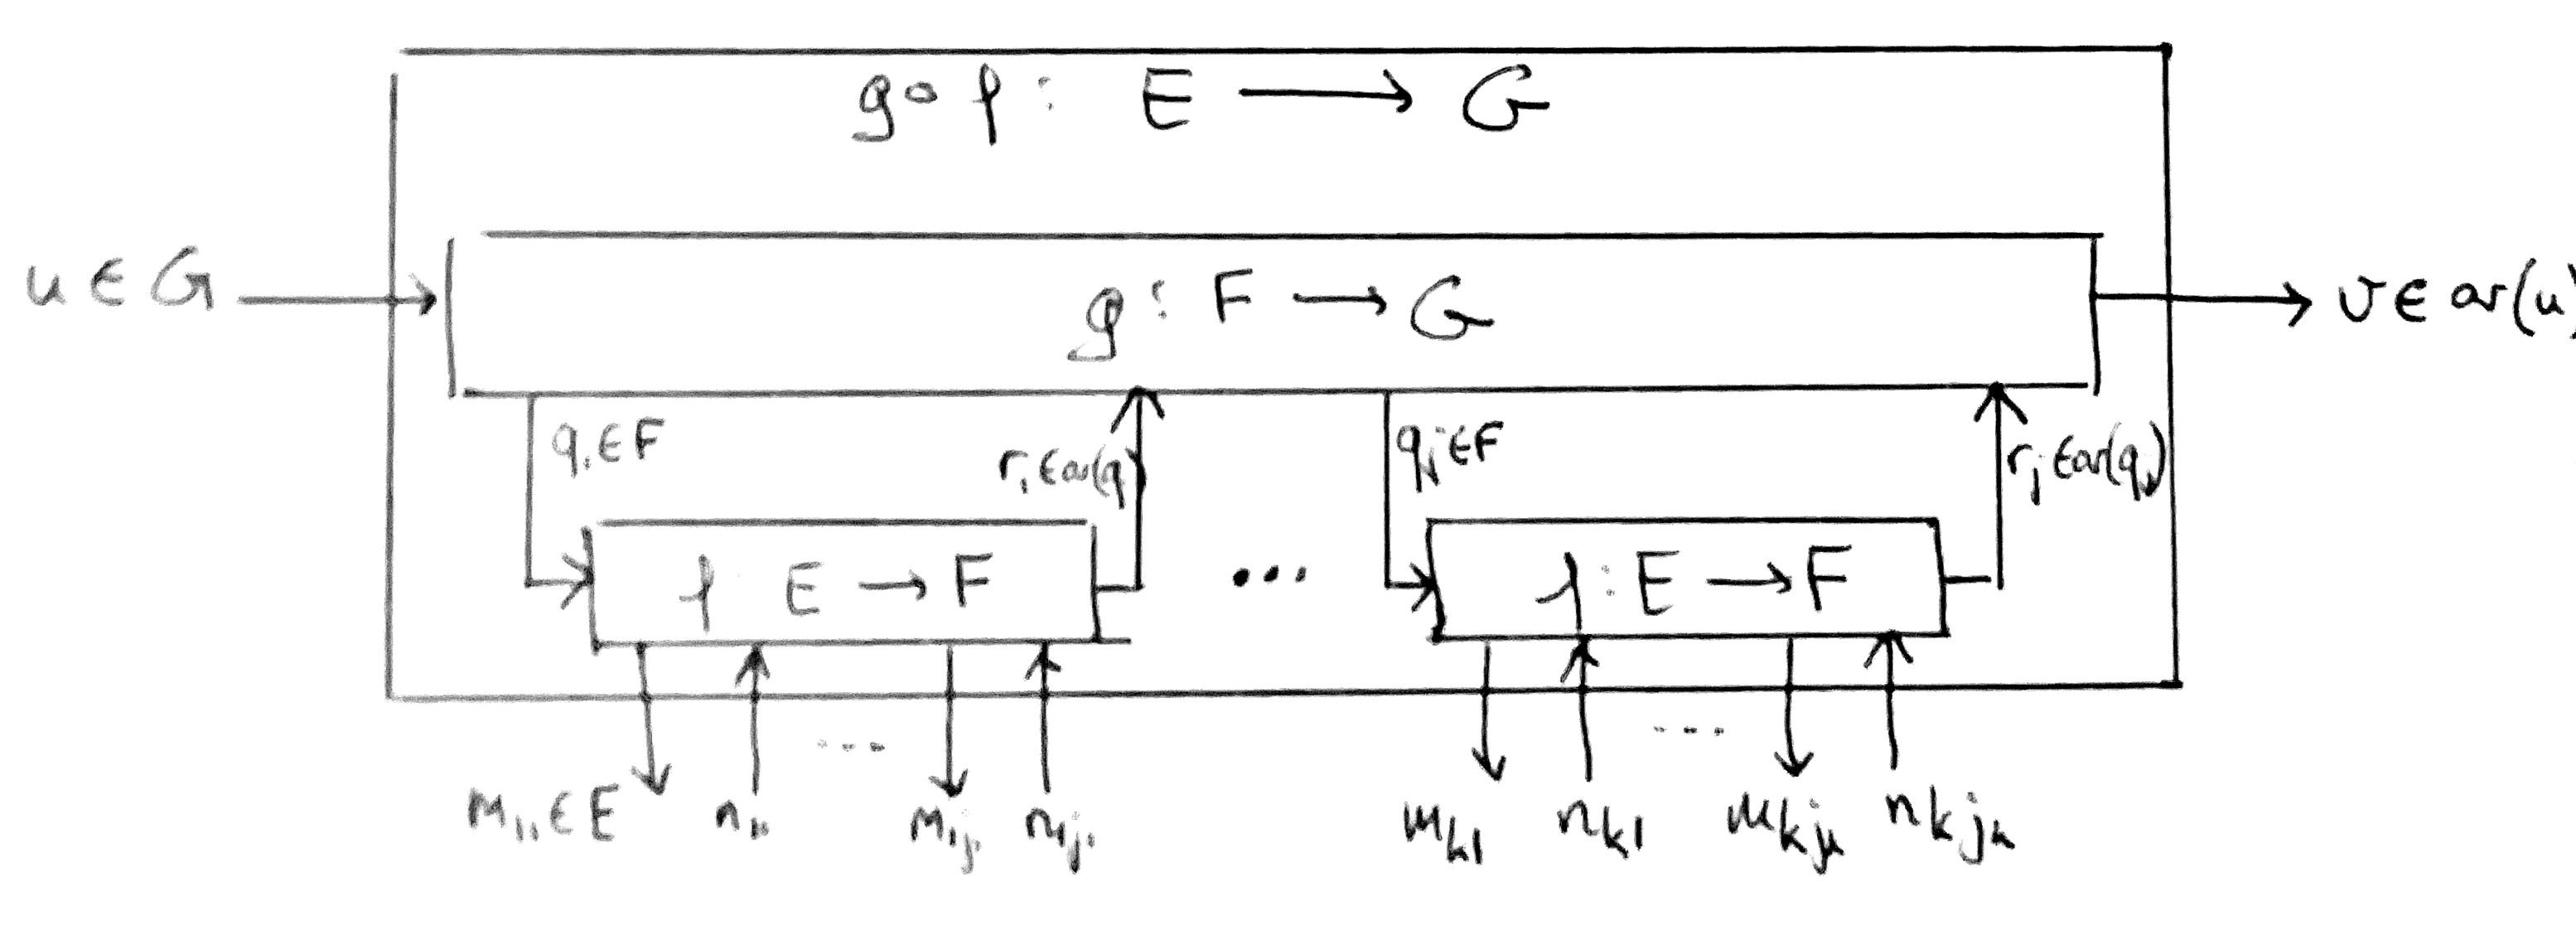 g∘f : E ⟶ G
u ∈ G
g : F ⟶ G
v ∈ ar(u)
q₁ ∈ F
r₁ ∈ ar(q₁)
qⱼ ∈ F
rⱼ ∈ ar(qⱼ)
f : E → F
...
f : E → F
...
...
m₁₁ ∈ E
n₁₁
m₁ⱼ₁
n₁ⱼ₁
mₖ₁
nₖ₁
mₖⱼₖ
nₖⱼₖ